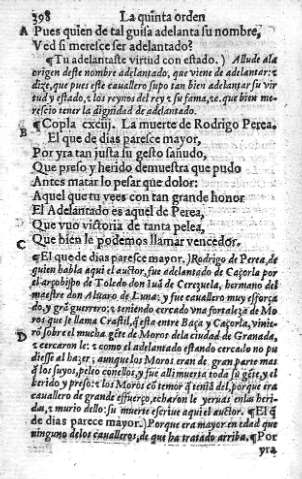 398 La quinta orden
A Pues quien de tal guisa adelanta su nombre,
Ved si meresce ser adelantado?
¶Tu adelantaste virtud con estado.) Allude ala
origen deste nombre adelantado, que viene de adelantar: z
dize, que pues este cauallero supo tan bien adelantar su vir
tud y estado, z los reynos del rey z su fama, ca que bien me-
rescio tener la dignidad de adelantado.
¶Copla cxciij. La muerte de Rodrigo Perea.
B El que de dias paresce mayor,
Por yra tan justa su gesto sañudo,
Que preso y herido demuestra que pudo
Antes matar lo pesar que dolor:
Aquel que tu vees con tan grande honor
El Adelantado es aquel de Perea,
Que vuo victoria de tanta pelea,
C Que bien le podemos llamar vencedor.
¶El que de dias paresce mayor.) Rodrigo de Perea, de
quien habla aqui el auctor, fue adelantado de Caçorla por
el arçobispo de Toledo don Iuã de Cerezuela, hermano del
maestre don Aluaro de Luna: y fue cauallero muy esforça
do, y grã guerrero: z teniendo cercado vna fortaleza de Mo
ros que se llama Crastil, q̃ esta entre Baça y Caçorla, vinie
D rõ sobre el mucha gẽte de Moros dela ciudad de Granada,
z cercaron le: z como el adelantado estando cercado no pu
diesse al hazer, aunque los Moros eran de gran parte mas
q̃ los suyos, peleo conellos, y fue alli muerta toda su gẽte, y el
herido y preso: z los Moros cõ temor q̃ teniã del, porque era
cauallero de grande esfuerço, echaron le yeruas enlas heri-
das, z murio dello: su muerte escriue aqui el auctor. ¶El q̃
de dias parece mayor.) Porque era mayor en edad que
ninguno delos caualleros, de que ha tratado arriba. ¶Por
yra